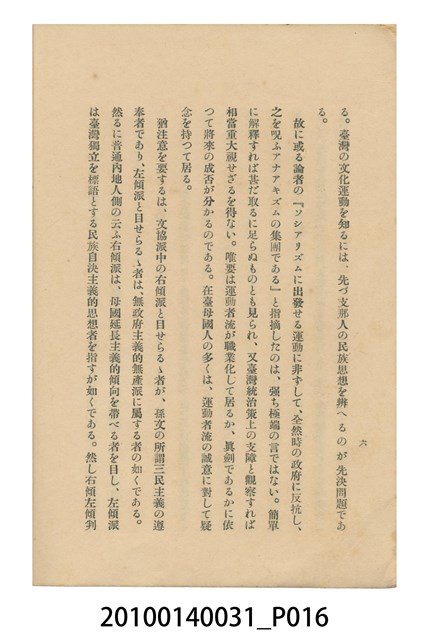 る。臺灣の文化運動を知るには、先づ支那人の民族思想を辨へるのが先決問題であ
る。
故に或る論者の『ソシアリズムに出發せる運動に非ずして、全然時の政府に反抗し、
之を呪ふアナアキズムの集團である』と指摘したのは、强ち極端の言ではない。簡單
に解釋すれば甚だ取るに足らぬものとも見られ、又臺灣統治策上の支障と觀察すれば
相當重大視せざるを得ない。唯要は運動者流が職業化して居るか、眞劍であるかに依
つて將來の成否が分かるのである。在臺母國人の多くは、運動者流の誠意に對して疑
念を持つて居る。
猶注意を要するは、文協派中の右傾派と目せらるゝ者が、孫文の所謂三民主義の遵
奉者であり、左傾派と目せらるゝ者は、無政府主義的無產派に屬する者の如くである。
然るに普通內地人側の云ふ右傾派は、母國延長主義的傾向を帶べる者を目し、左傾派
は臺灣獨立を標語とする民族自決主義的思想者を指すが如くである。然し右傾左傾判
六
20100140031_P016